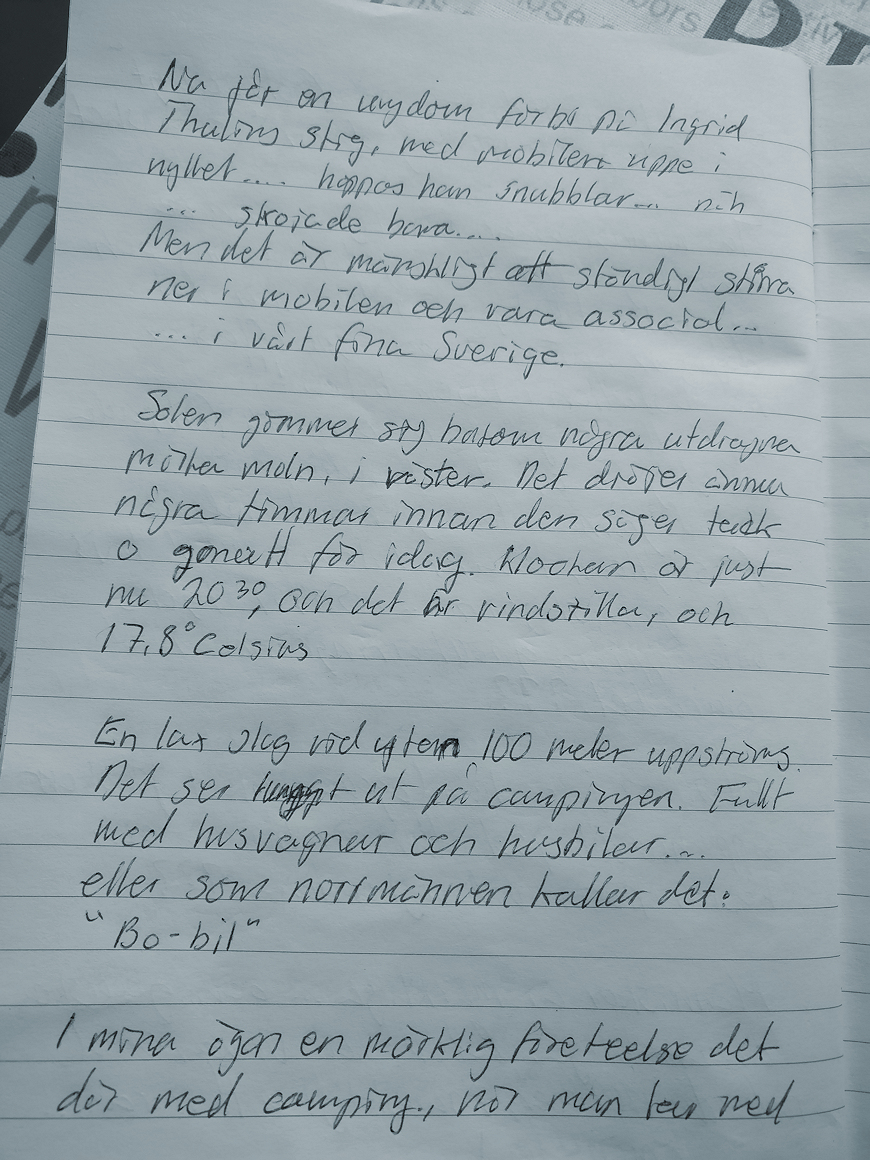 Nu går en ungdom förbi på Ingrid
Thulins stig, med mobilen uppe i
nyllet.... hoppas han snubblar... näh
... skojade bara....
Men det är märkligt att ständigt stirra
ner i mobilen och vara associal...
... i vårt fina Sverige.
Solen gömmer sig bakom några utdragna
mörka moln, i väster. Det dröjer ännu
några timmar innan den säger tack
o gonatt för idag. Klockan är just
nu 20 30, och det är vindstilla, och
17,8° Celsius
En lax slog vid ytan 100 meter uppströms.
Det ser ut på campingen. Fullt
med husvagnar och husbilar...
eller som norrmännen kallar det:
"Bo-bil"
I mina ögon en märklig företeelse det
där med camping., när man ned